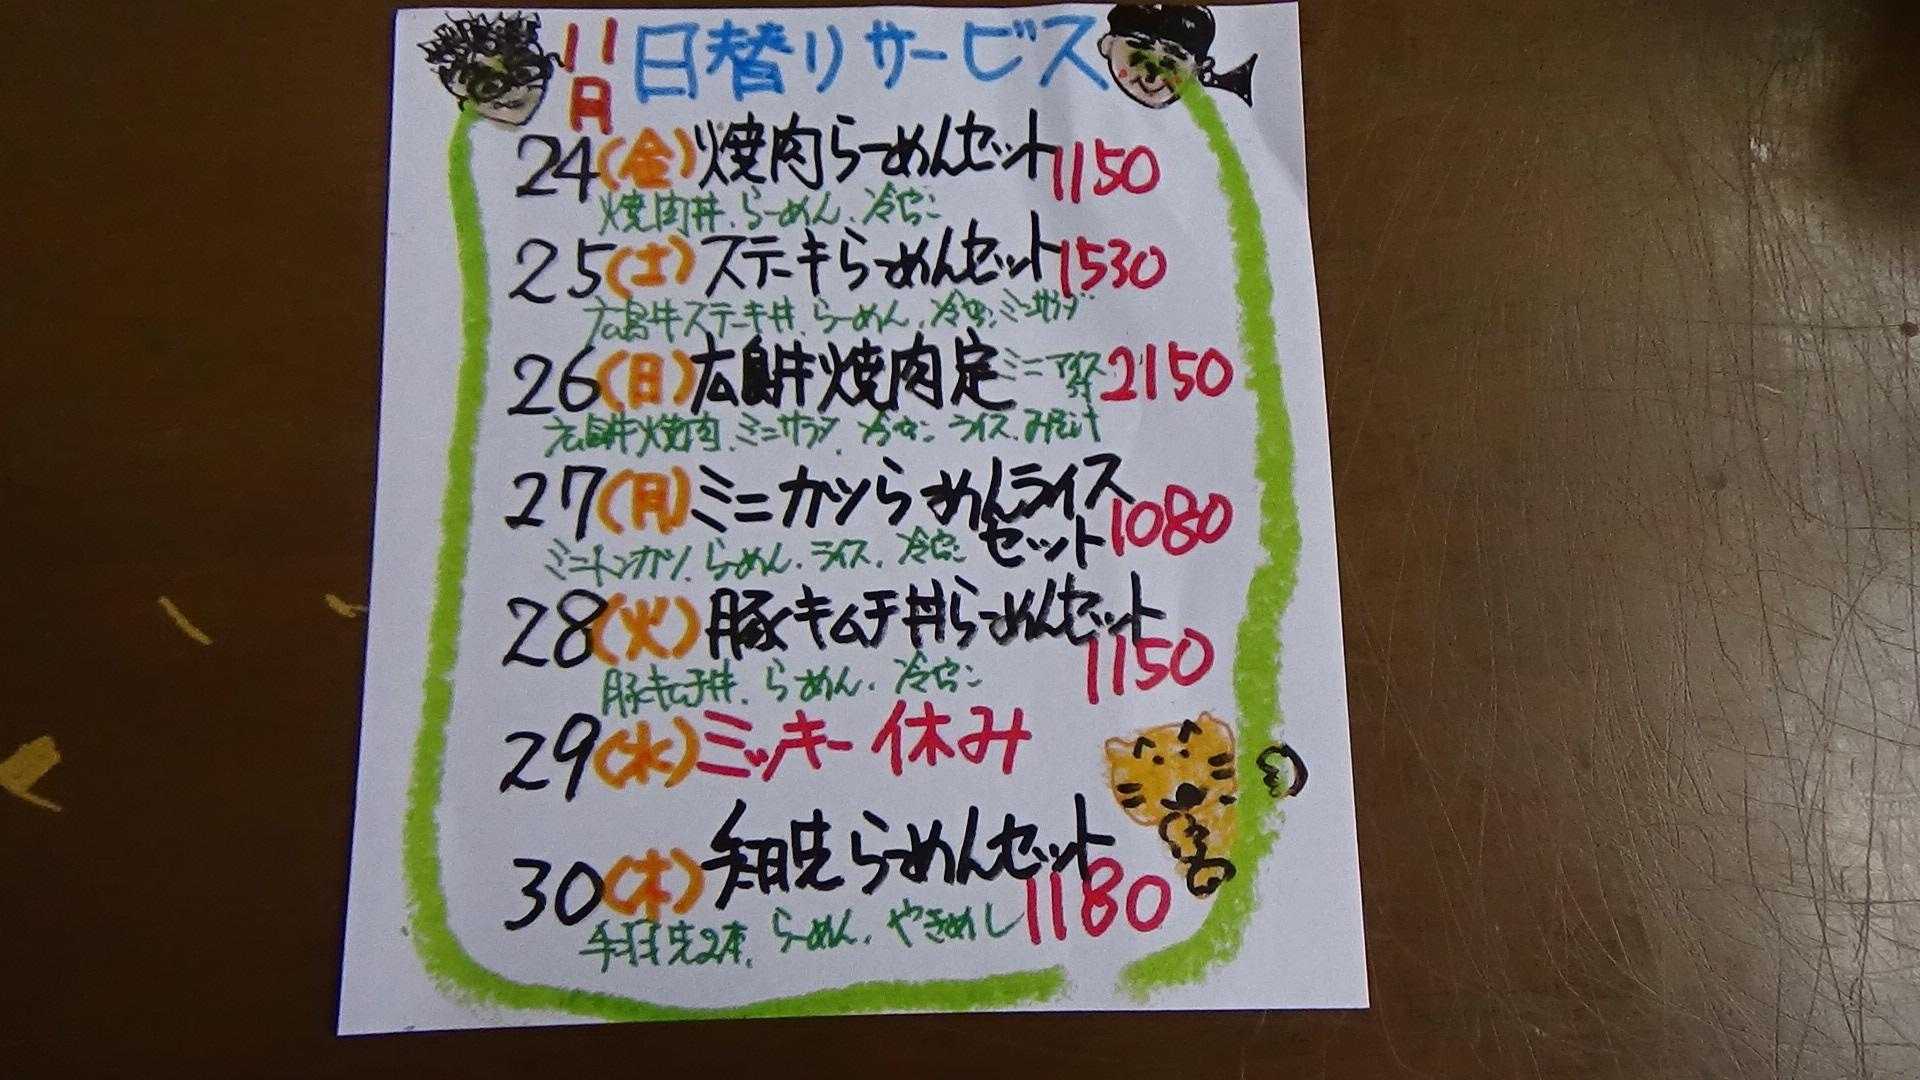 11月 日替りサービス
24(金)焼肉らーめんセット1150
焼肉丼、らーめん、冷やっこ
25(土)ステーキらーめんセット1530
広島牛ステーキ丼、らーめん、冷やっこ、ミニサラダ
26(日)広島牛焼肉定 ミニアイス付 2150
広島牛焼肉、ミニサラダ、ライス、みそ汁
27(月)ミニカツらーめんライス
セット1080
ミニトンカツ、らーめん、ライス、冷やっこ
28(火)豚キムチ丼らーめんセット
1150
豚キムチ丼、らーめん、冷やっこ
29(水)ミッキー休み
30(木)手羽先らーめんセット
1180
手羽先2本、らーめん、やきめし